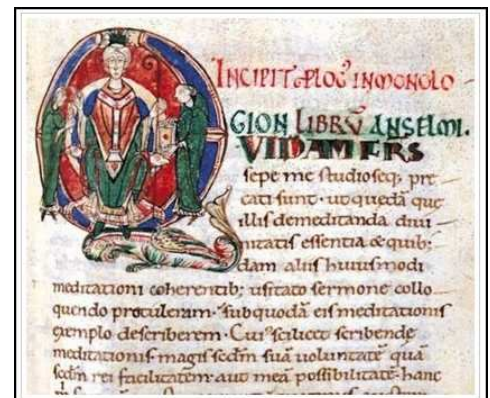 INCIPIT PLOG' IN MONOLO
GION LIBRV̄ ANSELMI.
VIDAM FRS
sepe me studioseq; pre
cati sunt · ut quedā que
illis de meditanda diui
nitatis essentia & quib;
dam aliis huiusmodi
meditationi coherentib; usitato sermone collo
quendo protuleram · sub quodā eis meditationis
exemplo describerem · Cui' scilicet scribende
meditationis magis scdm̄ suā uoluntatē quā
scdm̄ rei facilitatem aut meā possibilitatē hanc